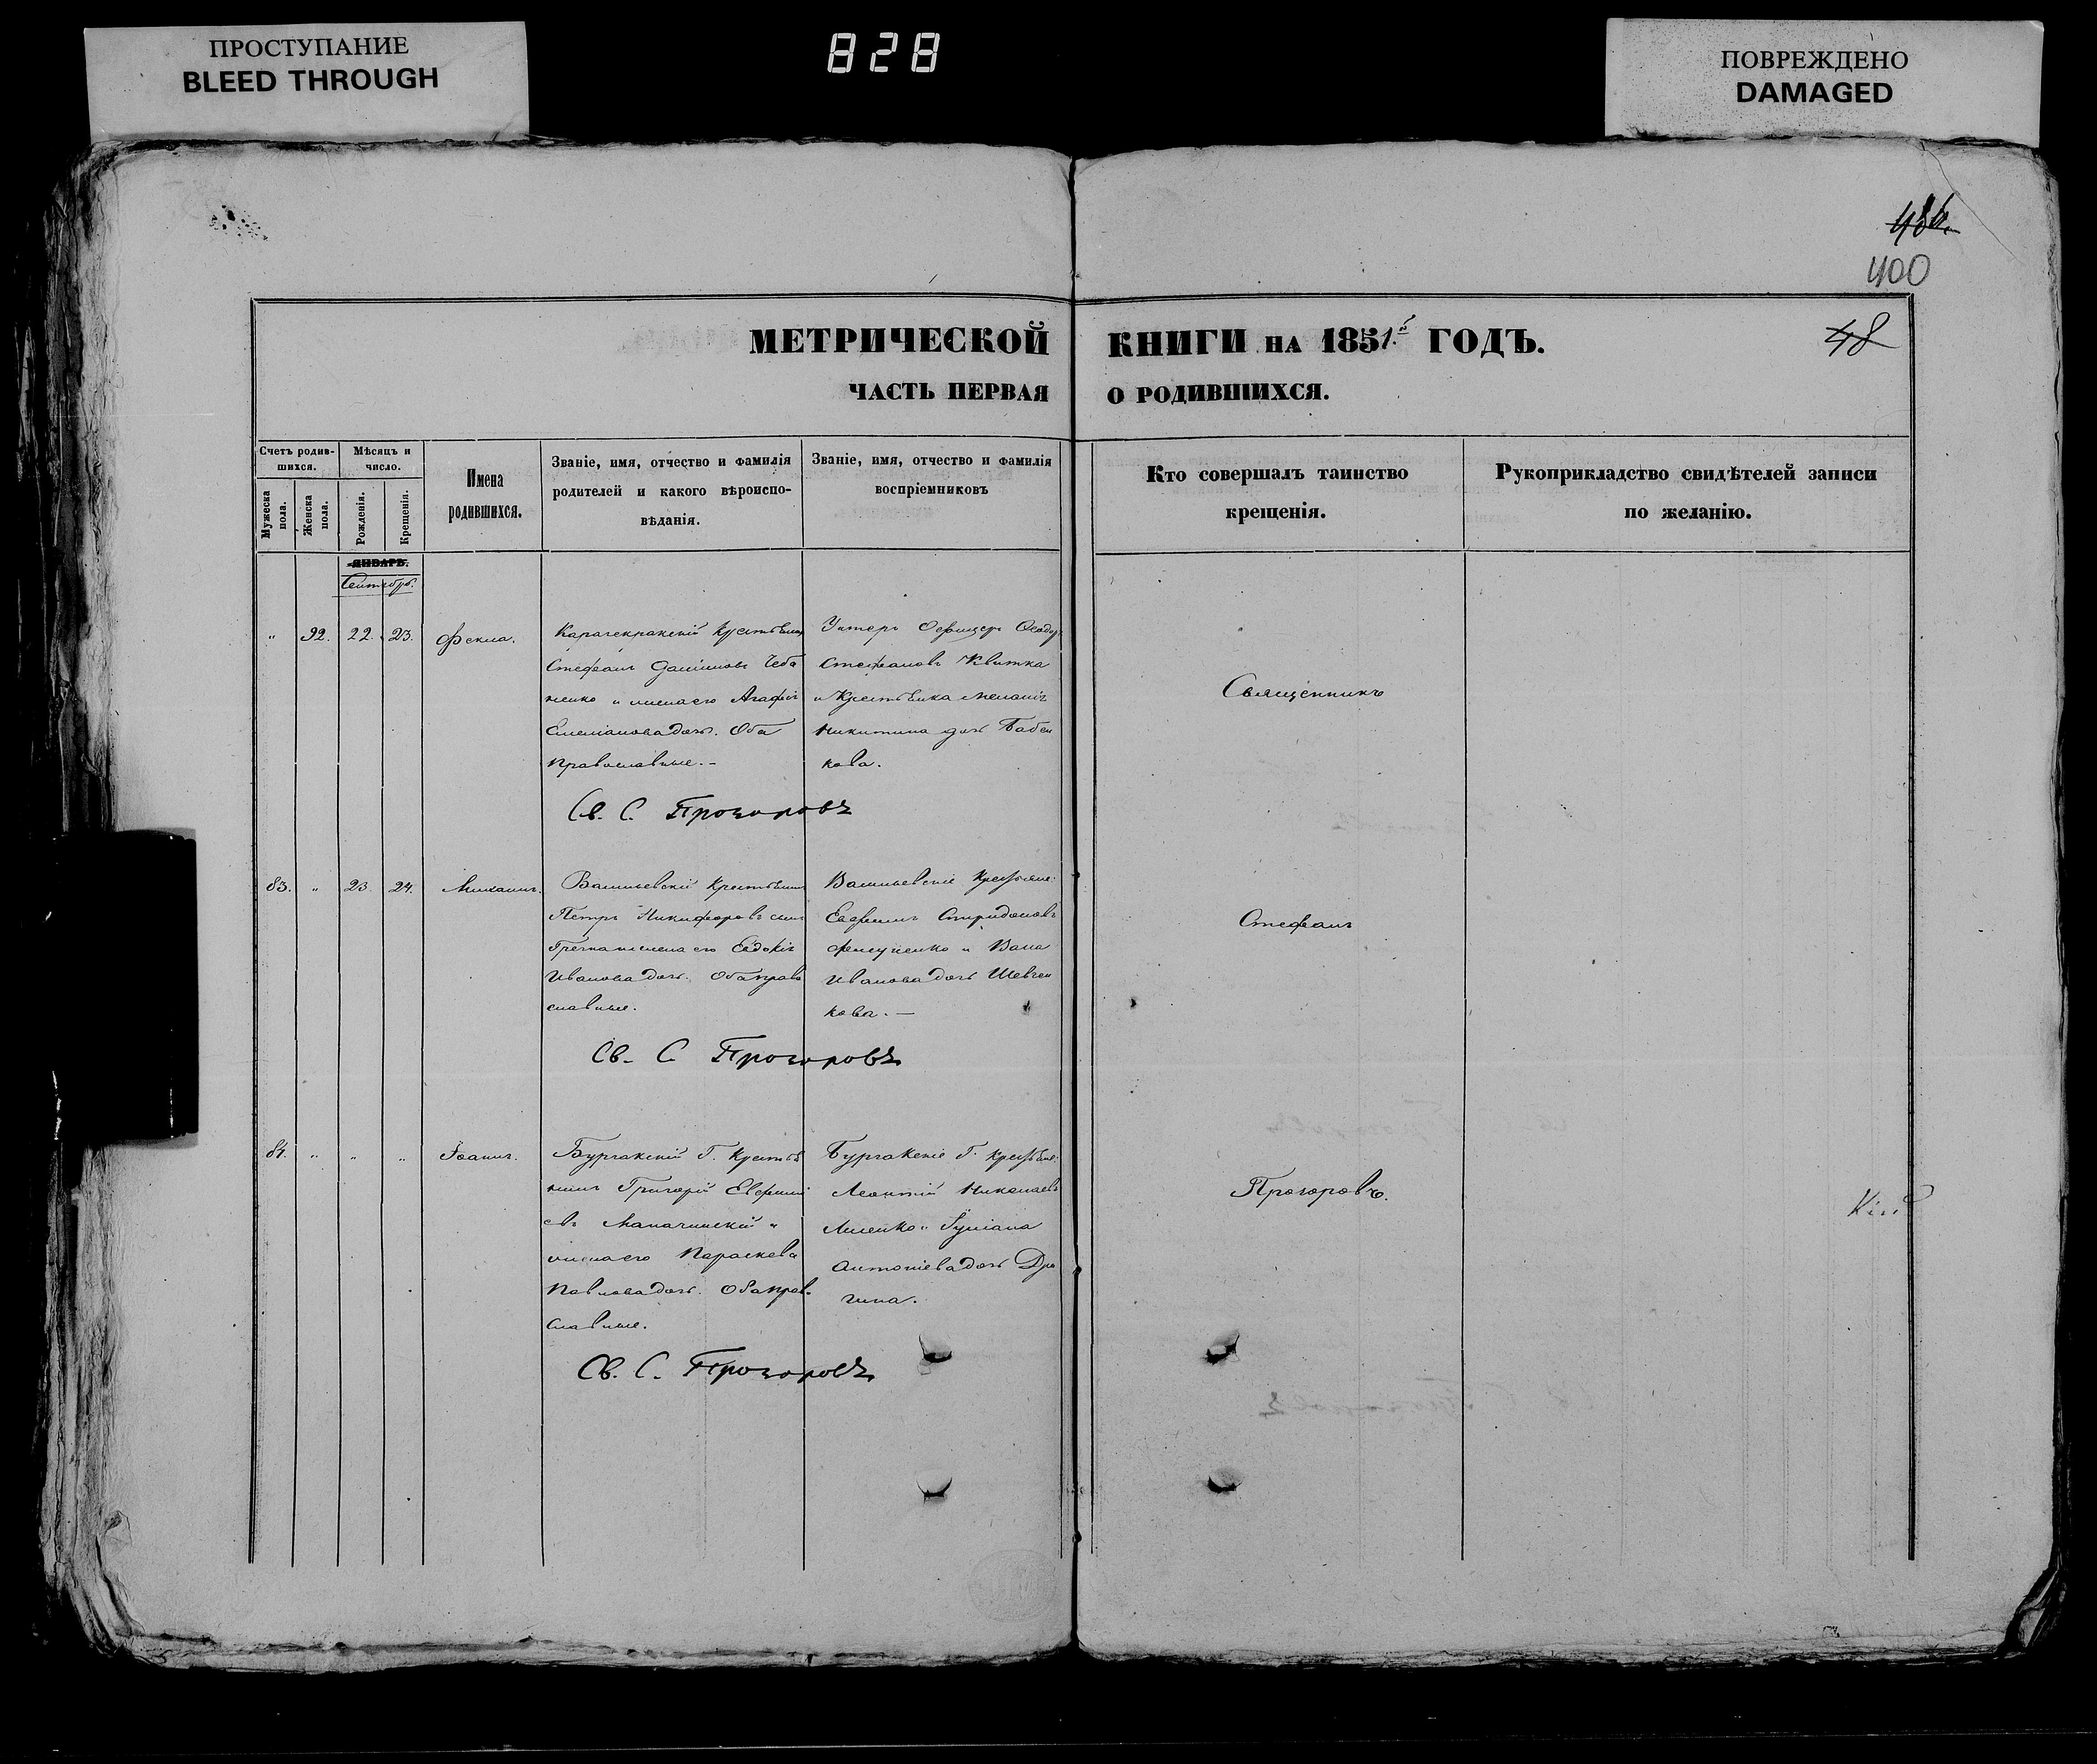 ПРОСТУПАНИЕ
BLEED THROUGH
828
ПОВРЕЖДЕНО
DAMAGED
400
МЕТРИЧЕСКОЙ КНИГИ НА 1851й ГОДЪ.
48
ЧАСТЬ ПЕРВАЯ О РОДИВШИХСЯ.
Счетъ родив-
шихся.
Мужеска пола.
Женска пола.
Мѣсяцъ и
число.
Рожденія.
Крещенія.
Имена
родившихся.
Званіе, имя, отчество и фамилія
родителей и какого вѣроиспо-
вѣданія.
Званіе, имя, отчество и фамилія
воспріемниковъ
Кто совершалъ таинство
крещенія.
Рукоприкладство свидѣтелей записи
по желанію.
ЯНВАРЬ.
Сентябрь.
" 92. 22. 23. Фекла.
Карачекракскій Крестьянинъ
Стефанъ Даніиловъ Чеба
ненко и жена его Агафія
Емеліанова дочь. Оба
православные.-
Унтеръ Офицеръ Ѳеодоръ
Стефановъ Квитка
и Крестьянка Меланія
Никитина дочь Бабен
кова.
Священникъ
Св. С. Прозоровъ
83. " 23. 24. Михаилъ.
Васильевскій Крестьянинъ
Петръ Никифоровъ сынъ
жена его Евдокія
Иванова дочь. Оба право
славные.
Васильевскіе Крестьяне:
Евфимъ Спиридоновъ
и
Иванова дочь Шевчен
кова. —
Стефанъ
Св. С Прозоровъ
84. " " " Іоаннъ.
Бурчакскій Г. Крестья
нинъ Григорій Евфимі
евъ и
жена его Параскева
Павлова дочь. Оба право
славные.
Бурчакскіе Г. Крестьяне:
Леонтій Николаевъ
Антоніева дочь
Прозоровъ.
Св. С. Прозоровъ